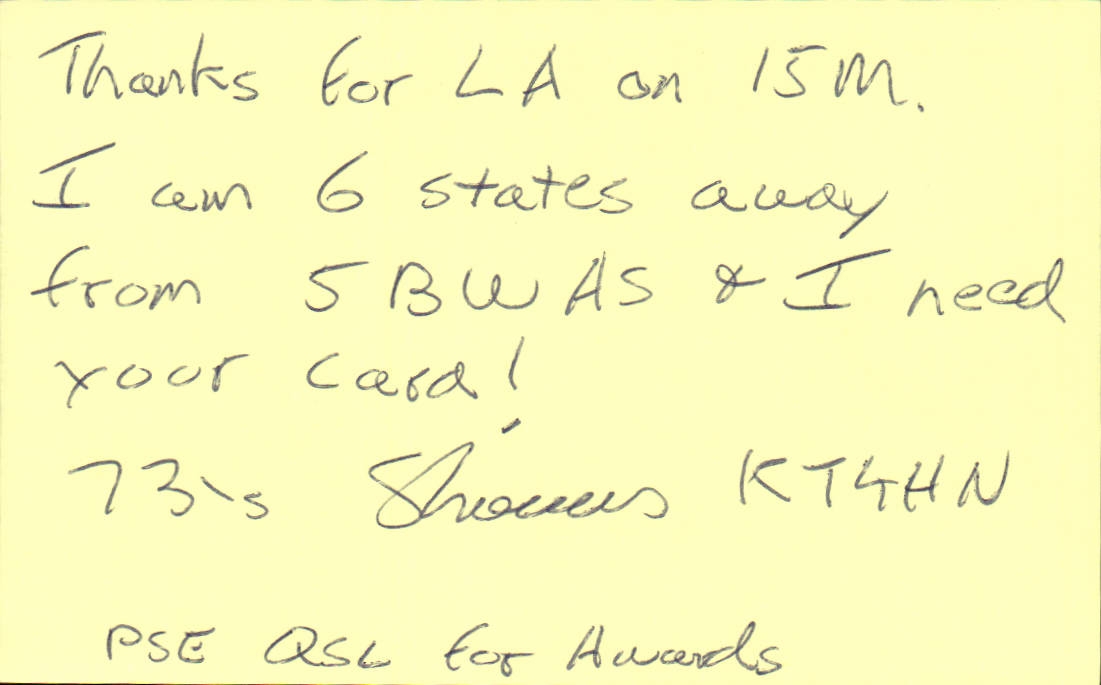 Thanks for LA on 15M.
I am 6 states away
from 5BWAS & I need
your card!
73's KT4HN
PSE QSL for Awards